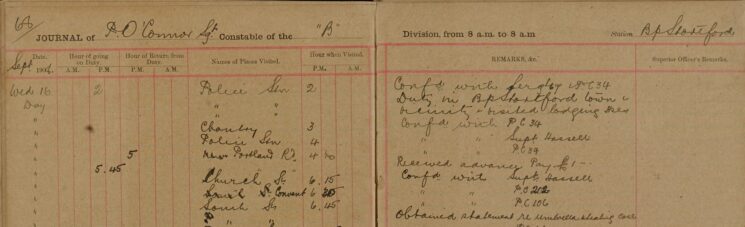 68
JOURNAL of P. O'Connor Sgt Constable of the "B" Division, from 8 a.m. to 8 a.m Station BpStortford
Date. Hour of going on Duty. Hour of Return from Duty. Names of Places Visited. Hour when Visited. REMARKS, &c. Superior Officer's Remarks.
Sept 190 A.M. P.M. A.M. P.M. P.M. A.M.
Wed 16 2 Police Stn 2 Confd with Sergt 18 PC 34
Day " " Duty in BpStortford town &
" " " vicinity visited lodging Hses
" Chantry 3 Confd with PC 34
" Police Stn 4 " " Supt Hassell
" 5 New Portland Rd 4 40 " " PC 39
" 5.45 Received advance Pay £1 -
" Church St 6.15 Confd with Supt Hassell
" South St Convent 6 " " PC 212
" South St 6.45 " " PC 106
" P " " Obtained statement re umbrella stealing case